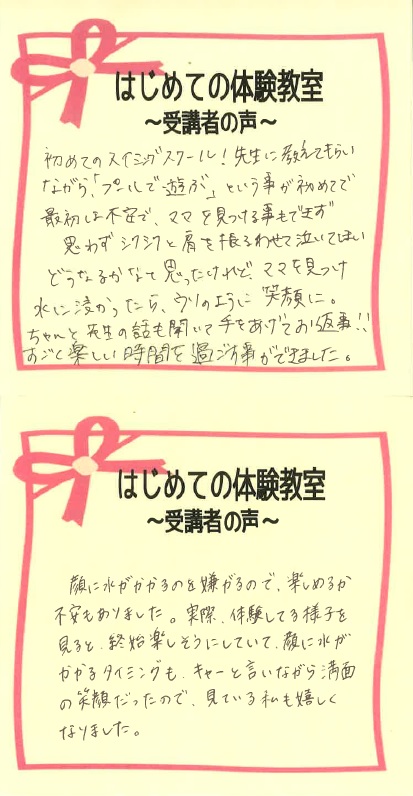 はじめての体験教室
～受講者の声～
初めてのスイミングスクール！先生に教えてもらい
ながら、「プールで遊ぶ」という事が初めてで
最初は不安で、ママを見つける事もできず
思わずシクシクと肩を振るわせて泣いてしまい
どうなるかなって思ったけれど、ママを見つけ
水に浸かったら、ウソのように笑顔に。
ちゃんと先生の話も聞いて手をあげてお返事!!
すごく楽しい時間を過ごす事ができました。
はじめての体験教室
～受講者の声～
顔に水がかかるのを嫌がるので、楽しめるか
不安もありました。実際、体験してる様子を
見ると、終始楽しそうにしていて、顔に水が
かかるタイミングも、キャーと言いながら満面
の笑顔だったので、見ている私も嬉しく
なりました。